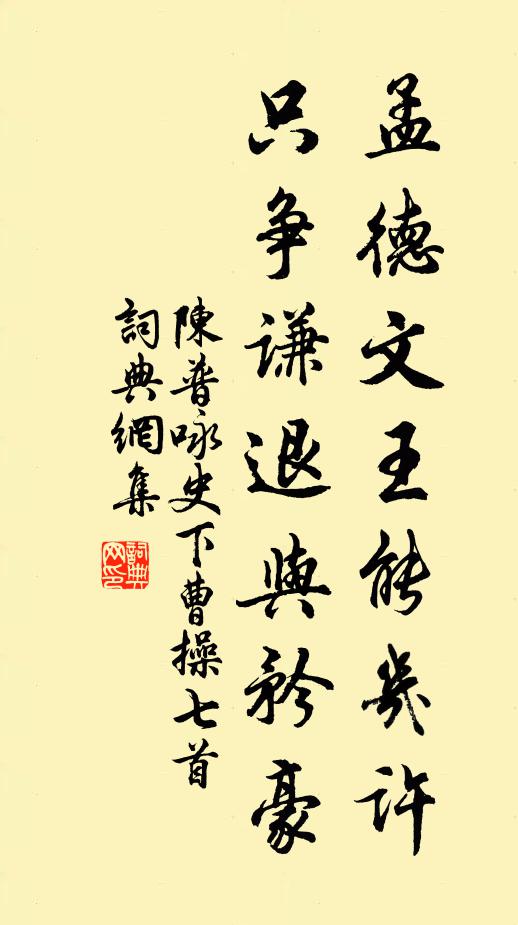 孟德文王能幾許
只争謙退與矜豪
陳普咏史下曹操七首
詞典網集
詞典
网印